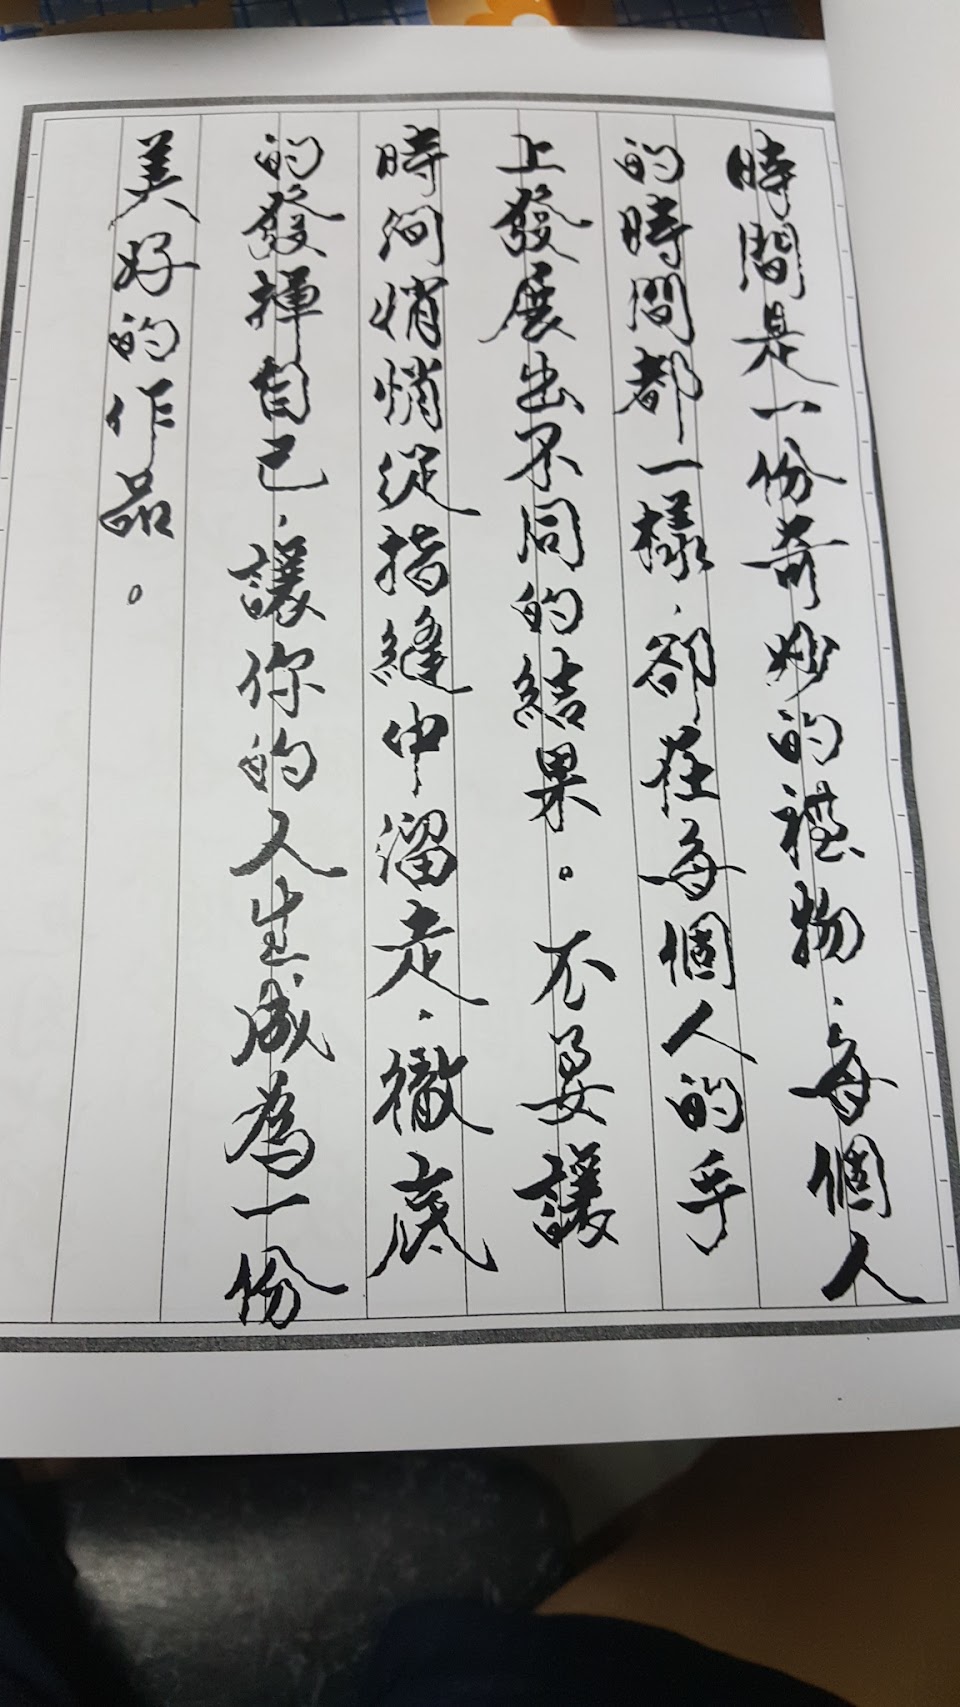 時間是一份奇妙的禮物，每個人
的時間都一樣，卻在每個人的手
上發展出不同的結果。不要讓
時間悄悄從指縫中溜走，徹底
的發揮自己，讓你的人生成為一份
美好的作品。